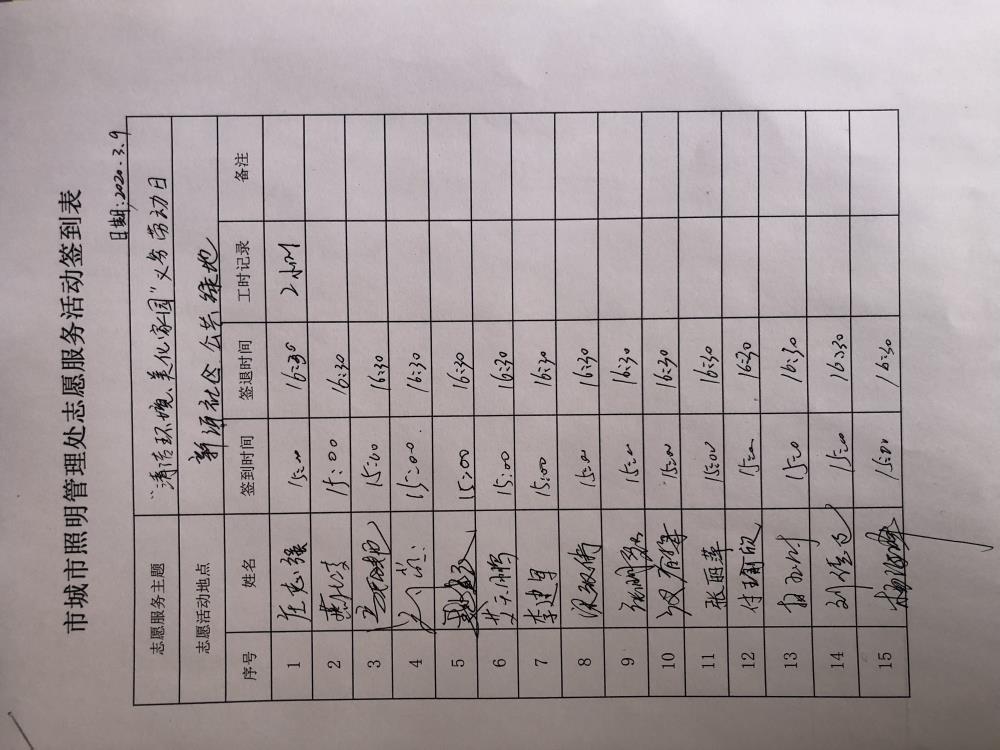 市城市照明管理处志愿服务活动签到表
日期:2020.3.9
志愿服务主题 "清洁环境、美化家园"义务劳动日
志愿活动地点 新源社区公共绿地
序号 姓名 签到时间 签退时间 工时记录 备注
1 左志强 15:00 16:30 2小时
2 15:00 16:30
3 15:00 16:30
4 15:00 16:30
5 15:00 16:30
6 15:00 16:30
7 李建军 15:00 16:30
8 15:00 16:30
9 15:00 16:30
10 15:00 16:30
11 张丽萍 15:00 16:30
12 付瑜欣 15:00 16:30
13 15:00 16:30
14 15:00 16:30
15 15:00 16:30